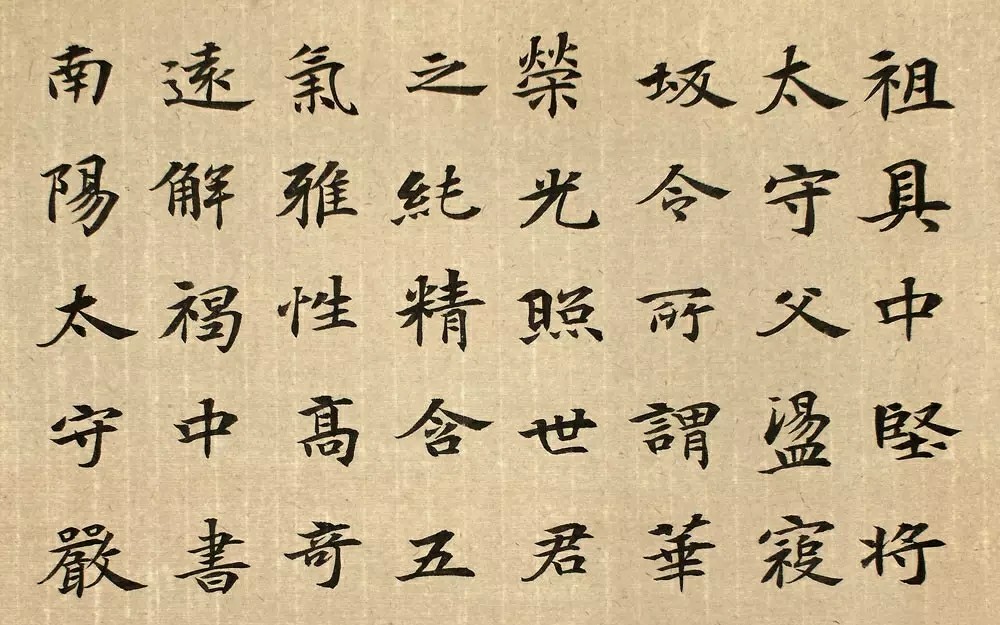 祖具中堅将
太守父盪寇
坂令所謂華
榮光照世君
之純精含五
氣雅性高奇
遠解褐中書
南陽太守嚴